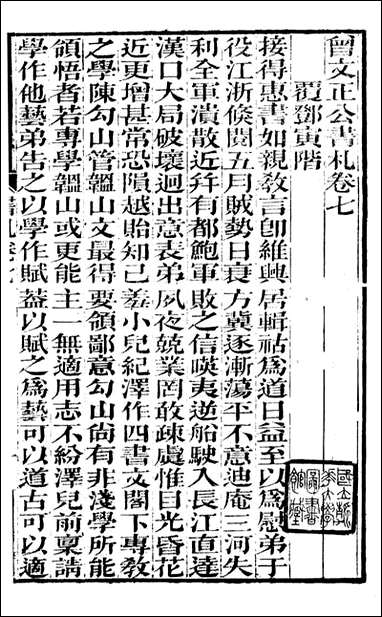 曾文正公書札卷七
覆鄧寅階
接得惠書如親教言卽維興居輯祜為道日益至以為慰弟于
役江浙倏閱五月賊勢日衰方冀逐漸蕩平不意迪庵三河失
利全軍潰散近幷有都鮑軍敗之信㗸夷逆船駛入長江直達
漢口大局破壞迥出意表弟夙夜兢業罔敢疎虞惟目光昏花
近更增甚常恐隕越貽知己羞小兒紀澤作四書文閣下專教
之學陳勾山管韞山文最得要領鄙意勾山尙有非淺學所能
領悟者若專學韞山或更能主一無適用志不紛澤兒前稟請
學作他藝弟告之以學作賦葢以賦之為藝可以道古可以適